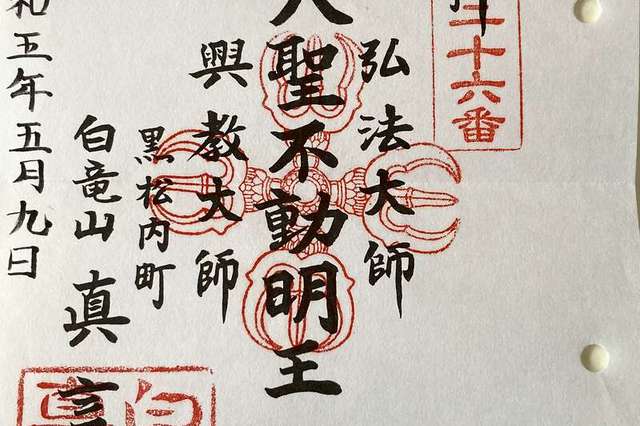 二十六番
弘法大師
大聖不動明王
興教大師
黒松内町
白竜山 真言
和五年五月九日
白